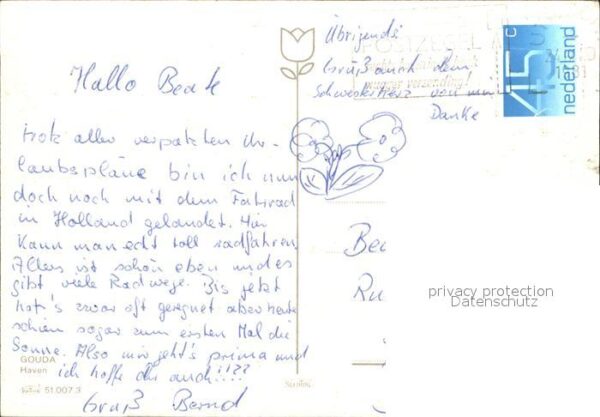 Hallo Beate
trotz aller verpatzten Ur-
laubspläne bin ich nun
doch noch mit dem Fahrrad
in Holland gelandet. Hier
kann man echt toll radfahren
Alles ist schön eben und es
gibt viele Radwege. Bis jetzt
hat's zwar oft geregnet aber heute
schien sogar zum ersten Mal die
Sonne. Also mir geht's prima und
ich hoffe dir auch!!??
Gruß Bernd
GOUDA
Haven
51.007.3
Übrigends
Gruß auch dem
Schwesterherz von mir
Danke
POSTZEGEL
45 c
nederland
1981
Bea
Ru
privacy protection
Datenschutz